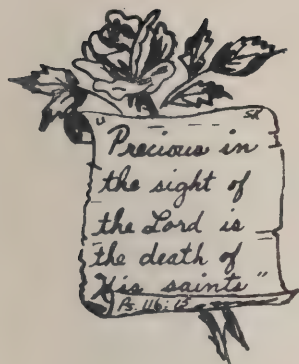 SK
"Precious in
the sight of
the Lord is
the death of
His saints"
Ps. 116:15